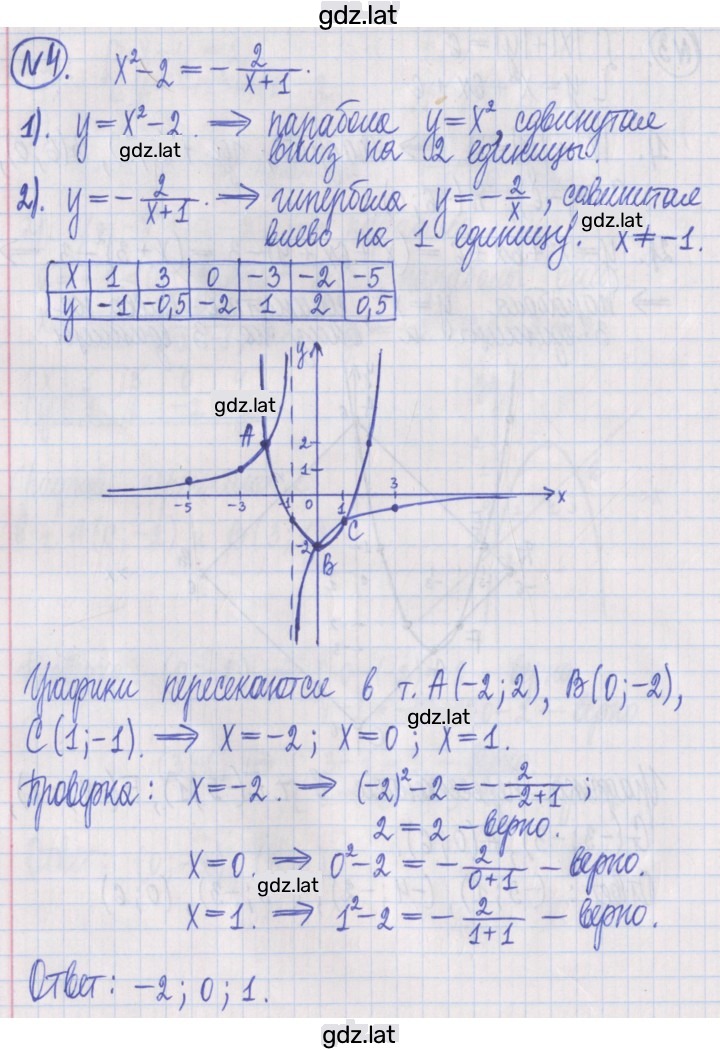 gdz.lat
№4. x² - 2 = - 2/(x+1).
1). y = x² - 2. ⟹ парабола y = x², сдвинутая
gdz.lat
вниз на 2 единицы.
2). y = - 2/(x+1). ⟹ гипербола y = - 2/x, сдвинутая
gdz.lat
влево на 1 единицу. x ≠ -1.
x | 1 | 3 | 0 | -3 | -2 | -5
y | -1 | -0,5 | -2 | 1 | 2 | 0,5
y
gdz.lat
A 2
1
-5 -3 -1 0 1 3 x
C
-2
B
Графики пересекаются в т. A(-2; 2), B(0; -2),
gdz.lat
C(1; -1). ⟹ x = -2; x = 0; x = 1.
Проверка: x = -2. ⟹ (-2)² - 2 = - 2/(-2+1);
2 = 2 - верно.
x = 0. ⟹ 0² - 2 = - 2/(0+1) - верно.
gdz.lat
x = 1. ⟹ 1² - 2 = - 2/(1+1) - верно.
Ответ: -2; 0; 1.
gdz.lat